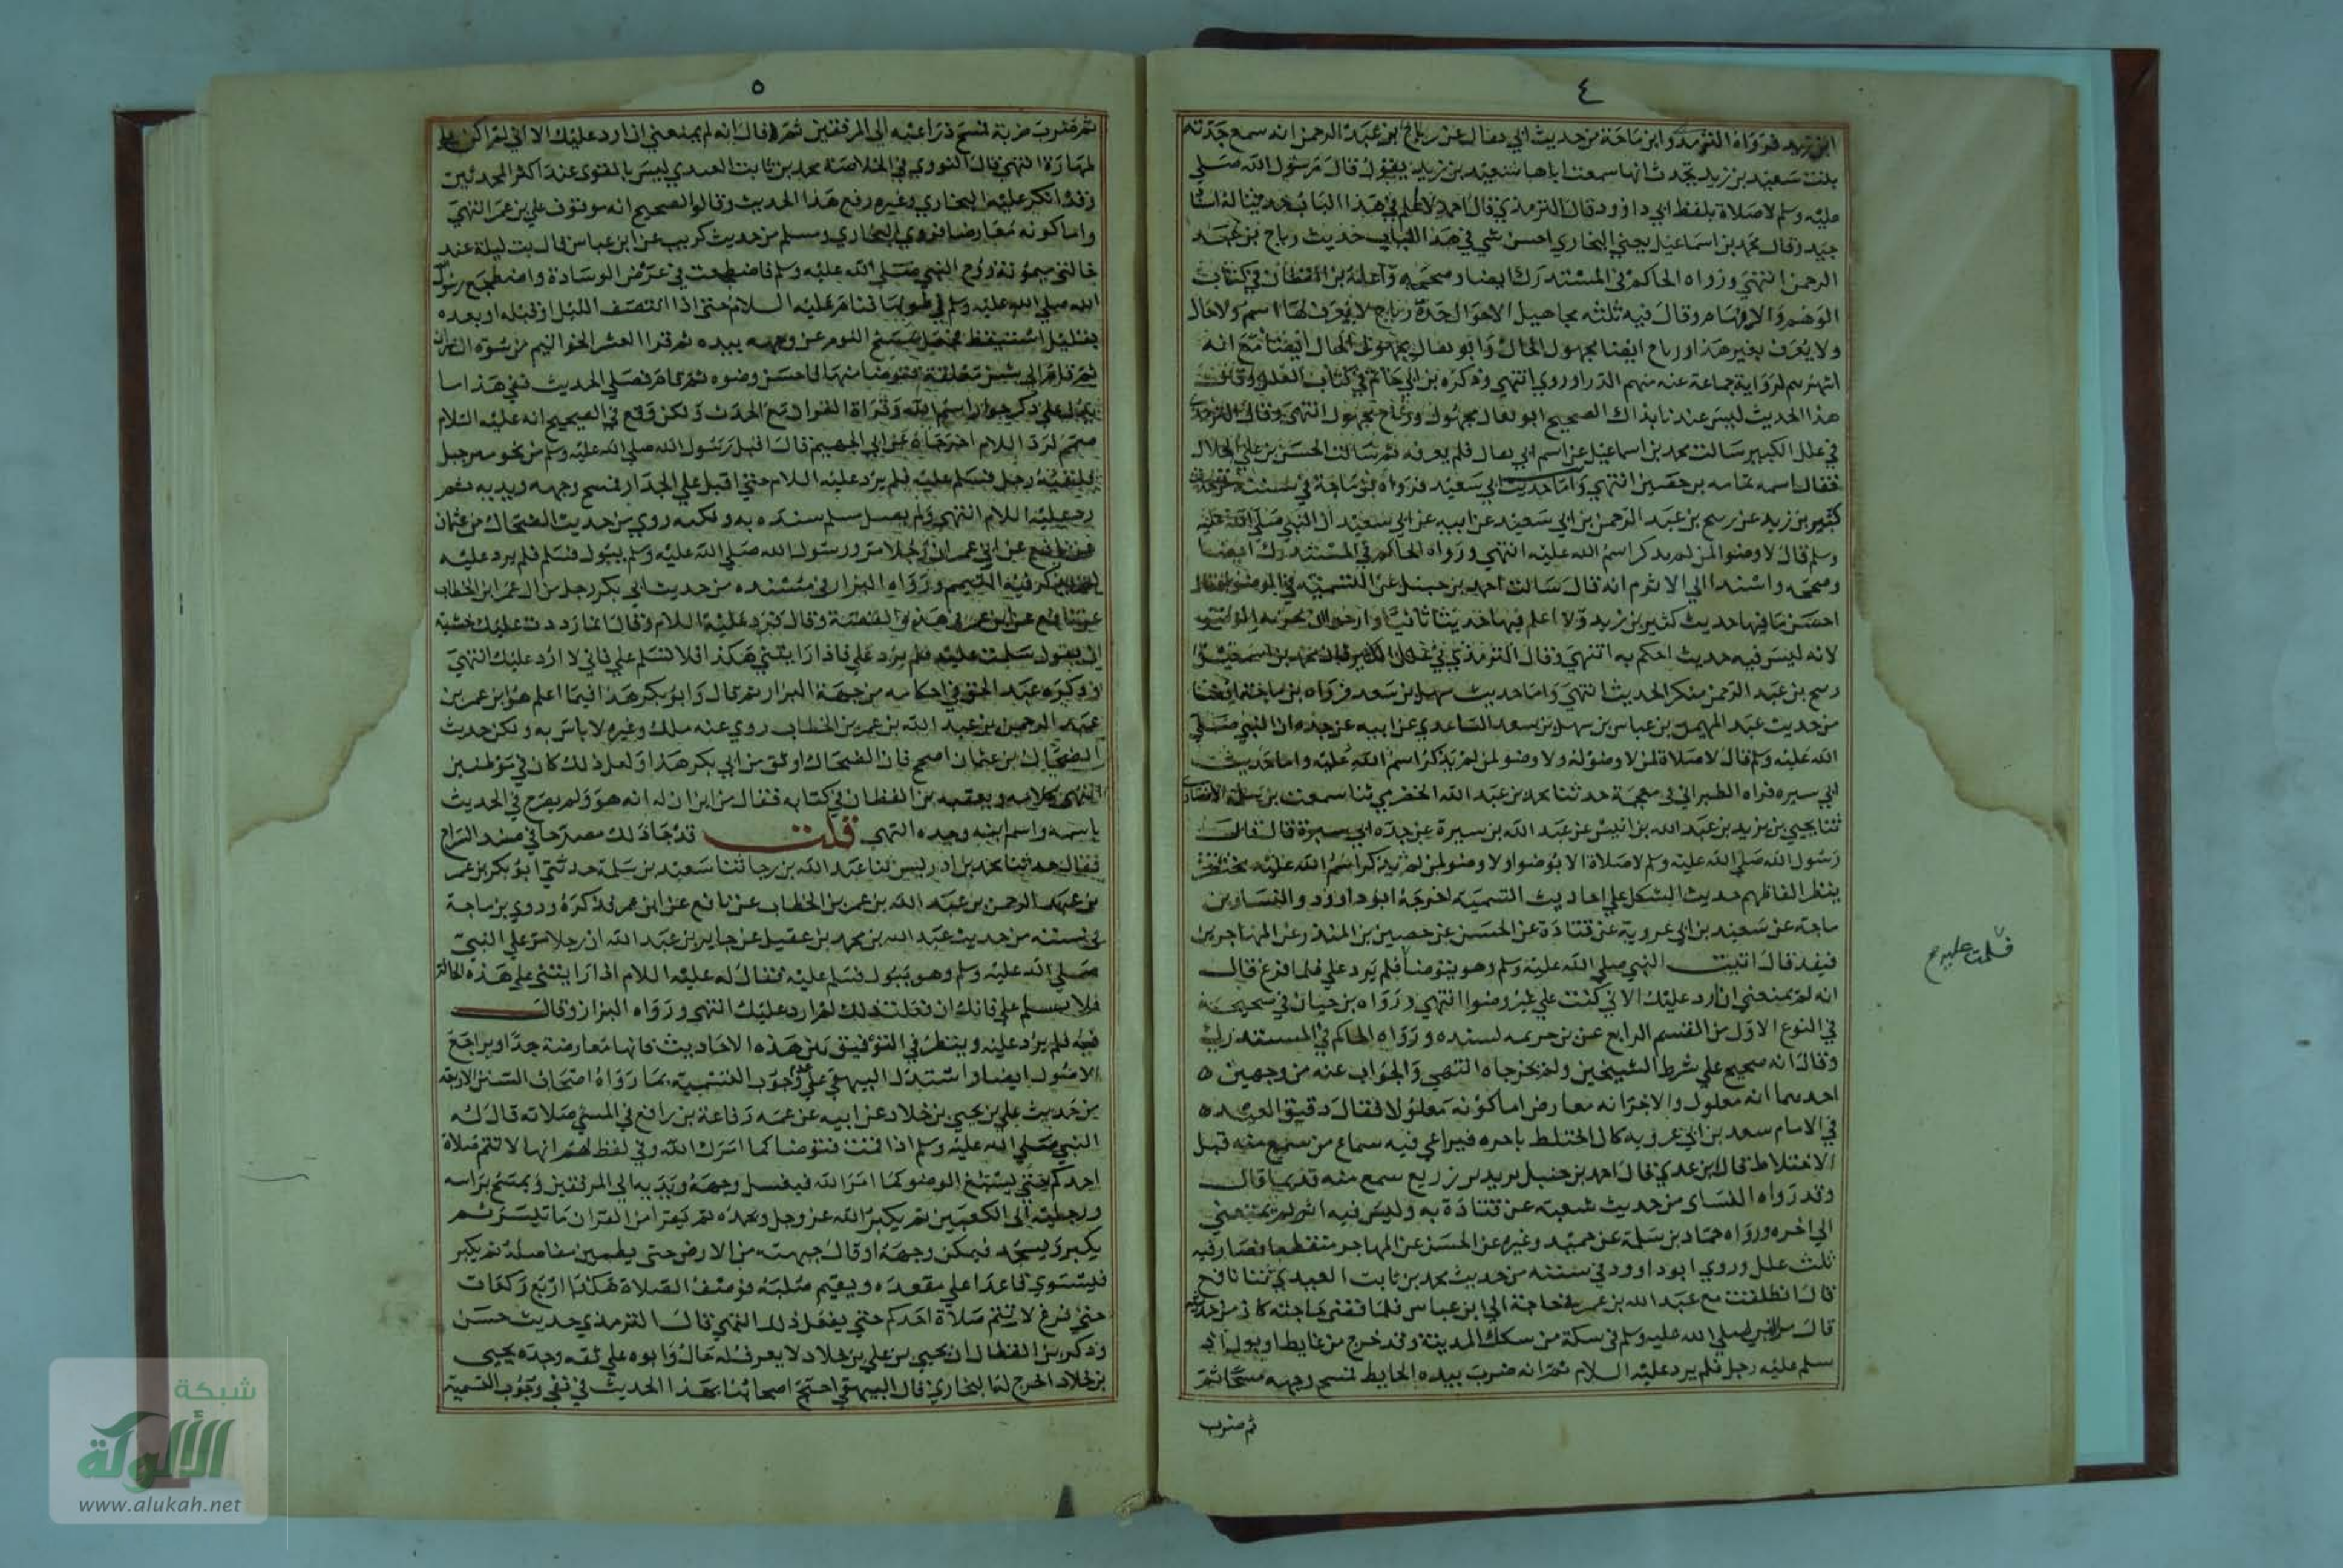 ٤
ابن زيد فرواه الترمذي وابن ماجة من حديث ابي ثفال عن رباح بن عبد الرحمن انه سمع جدته
بنت سعيد بن زيد تحدث انها سمعت اباها سعيد بن زيد يقول قال رسول الله صلي
عليه وسلم لا صلاة بلفظ ابي داوود قال الترمذي قال احمد لا اعلم في هذا الباب حديثا له اسنا
جيد وقال محمد بن اسماعيل يعني البخاري احسن شي في هذا الباب حديث رباح بن عبد
الرحمن انتهي ورواه الحاكم في المستدرك ايضا وصححه وأعله بن القطان في كتاب
الوهم والايهام وقال فيه ثلثه مجاهيل الاحوال جدة رباح لا يعرف لها اسم ولا حال
ولا يعرف بغير هذا ورباح ايضا مجهول الحال وابو ثفال مجهول الحال ايضا مع انه
اشهرهم لرواية جماعة عنه منهم الدراوردي انتهي وذكره بن ابي حاتم في كتاب العلل وقال
هذا الحديث ليس عندنا بذاك الصحيح ابو ثفال مجهول ورباح مجهول انتهي وقال الترمذي
في علل الكبير سالت محمد بن اسماعيل عن اسم ابي ثفال فلم يعرفه ثم سالت الحسن بن علي الخلال
فقال اسمه ثمامه بن حصين انتهي واما حديث ابي سعيد فرواه بن ماجة في سننه من حديث
كثير بن زيد عن ربيح بن عبد الرحمن بن ابي سعيد عن ابيه عن ابي سعيد ان النبي صلي الله عليه
وسلم قال لا وضوا لمن لم يذكر اسم الله عليه انتهي ورواه الحاكم في المستدرك ايضا
وصححه واسند الي الاثرم انه قال سالت احمد بن حنبل عن التسمية في الوضو فقال
احسن ما فيها حديث كثير بن زيد ولا اعلم فيها حديثا ثابتا وارجوا ان يجزيه الوضو
لانه ليس فيه حديث احكم به انتهي وقال الترمذي في علل الكبير قال محمد بن اسمعيل
ربيح بن عبد الرحمن منكر الحديث انتهي واما حديث سهل بن سعد فرواه بن ماجة ايضا
من حديث عبد المهيمن بن عباس بن سهل بن سعد الساعدي عن ابيه عن جده ان النبي صلي
الله عليه وسلم قال لا صلاة لمن لا وضو له ولا وضو لمن لم يذكر اسم الله عليه واما حديث
ابي سبره فراه الطبراني في معجمة حدثنا محمد بن عبد الله الحضرمي ثنا سمعت بن سلمة الانصاري
ثنا يحيي بن يزيد بن عبد الله بن انيس عن عبد الله بن سبرة عن جده ابي سبرة قال قال
رسول الله صلي الله عليه وسلم لا صلاة الا بوضوا ولا وضو لمن لم يذكر اسم الله عليه مختصر
ينظر الفاظهم حديث الشكل علي احاديث التسمية اخرجه ابو داوود والنساوبن
ماجة عن سعيد بن ابي عروبة عن قتادة عن الحسن عن حصين بن المنذر عن المهاجر بن
قنفذ قال اتيت النبي صلي الله عليه وسلم وهو يتوضا فلم يرد علي فلما افرغ قال
انه لم يمنعني ان ارد عليك الا اني كنت علي غير وضوا انتهي ورواه بن حبان في صحيحة
في النوع الاول من القسم الرابع عن بن خزيمه بسنده ورواه الحاكم في المستدرك
وقال انه صحيح علي شرط الشيخين ولم يخرجاه انتهي والجواب عنه من وجهين ٥
احدهما انه معلول والاخر انه معارض اما كونه معلولا فقال دقيق العيد ٥
في الامام سعد بن ابي عروبه كان اختلط باخره فيراعي فيه سماع من سمع منه قبل
الاختلاط قال بن عدي قال احمد بن حنبل يزيد بن زريع سمع منه قديما قال
وقد رواه النساى من حديث شعبة عن قتادة به وليس فيه انه لم يمنعني
الي اخره ورواه حماد بن سلمة عن حميد وغيره عن الحسن عن المهاجر منقطعا فصار فيه
ثلث علل وروي ابو داوود في سننه من حديث محمد بن ثابت العبدي ثنا نافع
قال انطلقت مع عبد الله بن عمر في حاجة الي ابن عباس فلما قضي حاجته كان من حديثه
قال مر النبي صلي الله عليه وسلم في سكة من سكك المدينة وقد خرج من غايط او بول اذ
سلم عليه رجل فلم يرد عليه السلام ثم انه ضرب بيده الحايط فمسح وجهه مسحا ثم
ثم ضرب
قلت عليه ح
٥
ثم ضرب ضربة فمسح ذراعيه الي المرفقين ثم وقال انه لم يمنعني ان ارد عليك الا اني لم اكن علي
طهارة انتهي قال النووي في الخلاصة محمد بن ثابت العبدي ليس بالقوي عند اكثر المحدثين
وقد انكر عليه البخاري وغيره رفع هذا الحديث وقالوا الصحيح انه موقوف علي بن عمر انتهي
واما كونه معارضا فروي البخاري ومسلم من حديث كريب عن ابن عباس قال بت ليلة عند
خالتي ميمونة زوج النبي صلي الله عليه وسلم فاضطجعت في عرض الوسادة واضطجع رسول
الله صلي الله عليه وسلم في طولها فنام عليه السلام حتي اذا انتصف الليل او قبله او بعده
بقليل استيقظ فجعل يمسح النوم عن وجهه بيده ثم قرا العشر الخواتيم من سورة ال عمران
ثم قام الي شن معلقة فتوضا منها فاحسن وضوه ثم قام فصلي الحديث ففي هذا ما
يدل علي ذكر جواز اسم الله وقراة القران مع الحدث ولكن وقع في الصحيح انه عليه السلام
تيمم لرد السلام اخرجاه عن ابي الجهيم قال اقبل رسول الله صلي الله عليه وسلم من نحو بير جمل
فلقيه رجل فسلم عليه فلم يرد عليه السلام حتي اقبل علي الجدار فمسح وجهه ويديه ثم
رد عليه السلام انتهي ولم يصل مسلم سنده به ولكنه روي من حديث الضحاك بن عثمان
عن نافع عن ابن عمر ان رجلا مر ورسول الله صلي الله عليه وسلم يبول فسلم فلم يرد عليه
لم يذكر فيه التيمم ورواه البزار في مسنده من حديث ابي بكر رجل من ال عمر ابن الخطاب
عن نافع عن ابن عمر في هذه القصة وقال فرد عليه السلام وقال انما رددت عليك خشية
ان يقول سلمت عليه فلم يرد علي فاذا رايتني هكذا فلا تسلم علي فاني لا ارد عليك انتهي
وذكره عبد الحق في احكامه من جهة البزار ثم قال وابو بكر هذا فيما اعلم هو ابن عمر بن
عبد الرحمن بن عبد الله بن عمر بن الخطاب روي عنه ملك وغيره لا باس به ولكن حديث
الضحاك بن عثمان اصح فان الضحاك اوثق من ابي بكر هذا ولعل ذلك كان في موطنين
انتهي كلامه وتعقبه بن القطان في كتابه فقال من اين ان له انه هو ولم يصرح في الحديث
باسمه واسم ابيه وجده انتهي قلت قد جا ذلك مصرحا في مسند السراج
فقال حدثنا محمد بن ادريس ثنا عبد الله بن رجا ثنا سعيد بن سلمة حدثني ابو بكر بن عمر
بن عبد الرحمن بن عبد الله بن عمر بن الخطاب عن نافع عن ابن عمر فذكره وروي بن ماجة
في سننه من حديث عبد الله بن محمد بن عقيل عن جابر بن عبد الله ان رجلا مر علي النبي
صلي الله عليه وسلم وهو يبول فسلم عليه فقال له عليه السلام اذا رايتني علي هذه الحالة
فلا تسلم علي فانك ان فعلت ذلك لم ارد عليك انتهي ورواه البزار وقال
فيه فلم يرد عليه وينظر في التوفيق بين هذه الاحاديث فانها متعارضة جدا ويراجع
الاصول ايضا واستدل البيهقي علي وجوب التسمية بما رواه اصحاب السنن الاربعة
من حديث علي بن يحيي بن خلاد عن ابيه عن عمه رفاعة بن رافع في المسئ صلاته قال له
النبي صلي الله عليه وسلم اذا قمت فتوضا كما امرك الله وفي لفظ لهم انها لا تتم صلاة
احدكم حتي يسبغ الوضو كما امر الله فيغسل وجهه ويديه الي المرفقين ويمسح براسه
ورجليه الي الكعبين ثم يكبر الله عز وجل ويحمده ثم يقرا من القران ما تيسر ثم
يكبر ويسجد فيمكن وجهه او قال جبهته من الارض حتي يطمين مفاصله ثم يكبر
فيستوي قاعدا علي مقعده ويقيم صلبه فوصف الصلاة هكذا اربع ركعات
حتي فرغ لا تتم صلاة احدكم حتي يفعل ذلك انتهي قال الترمذي حديث حسن
وذكر بن القطان ان يحيي بن علي بن خلاد لا يعرف له حال وابوه علي ثقه وجده يحيي
بن خلاد اخرج له البخاري قال البيهقي احتج اصحابنا بهذا الحديث في نفي وجوب التسمية
شبكة
الألوكة
www.alukah.net